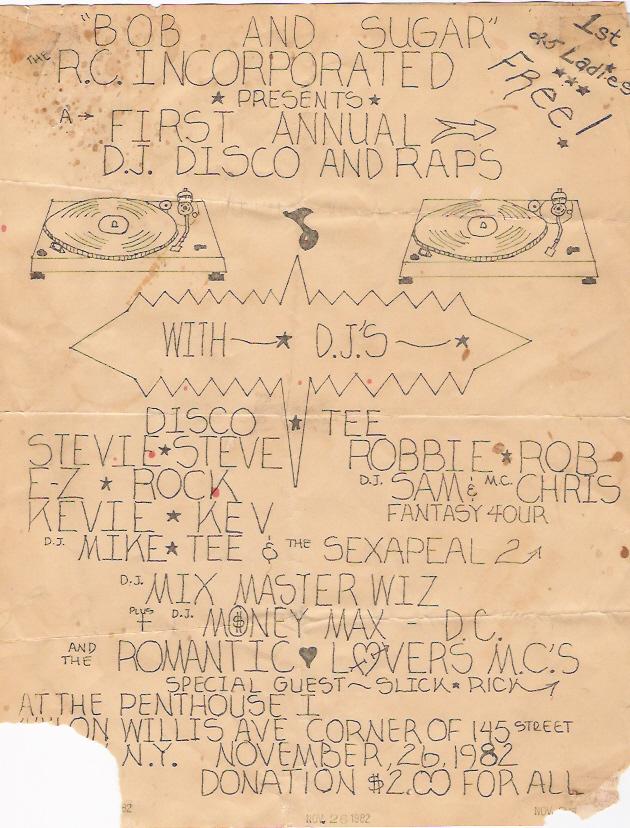 "BOB AND SUGAR"
THE R.C. INCORPORATED
★ PRESENTS ★
A → FIRST ANNUAL
D.J. DISCO AND RAPS
1st
25 Ladies
FREE!
WITH ★ D.J.'S ★
DISCO ★ TEE
STEVIE ★ STEVE
E-Z ★ ROCK
KEVIE ★ KEV
ROBBIE ★ ROB
D.J. SAM & M.C. CHRIS
FANTASY 4OUR
D.J. MIKE ★ TEE & THE SEXAPEAL 2
D.J. MIX MASTER WIZ
PLUS D.J. MONEY MAX - D.C.
AND THE ROMANTIC ♥ LOVERS M.C.'S
SPECIAL GUEST ~ SLICK ★ RICK
AT THE PENTHOUSE I
ON WILLIS AVE CORNER OF 145 STREET
N.Y. NOVEMBER, 26, 1982
DONATION $2.00 FOR ALL
82 NOV 26 1982 NOV